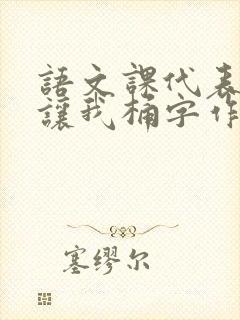 語文課代表
讓我桶字作
塞缪尔